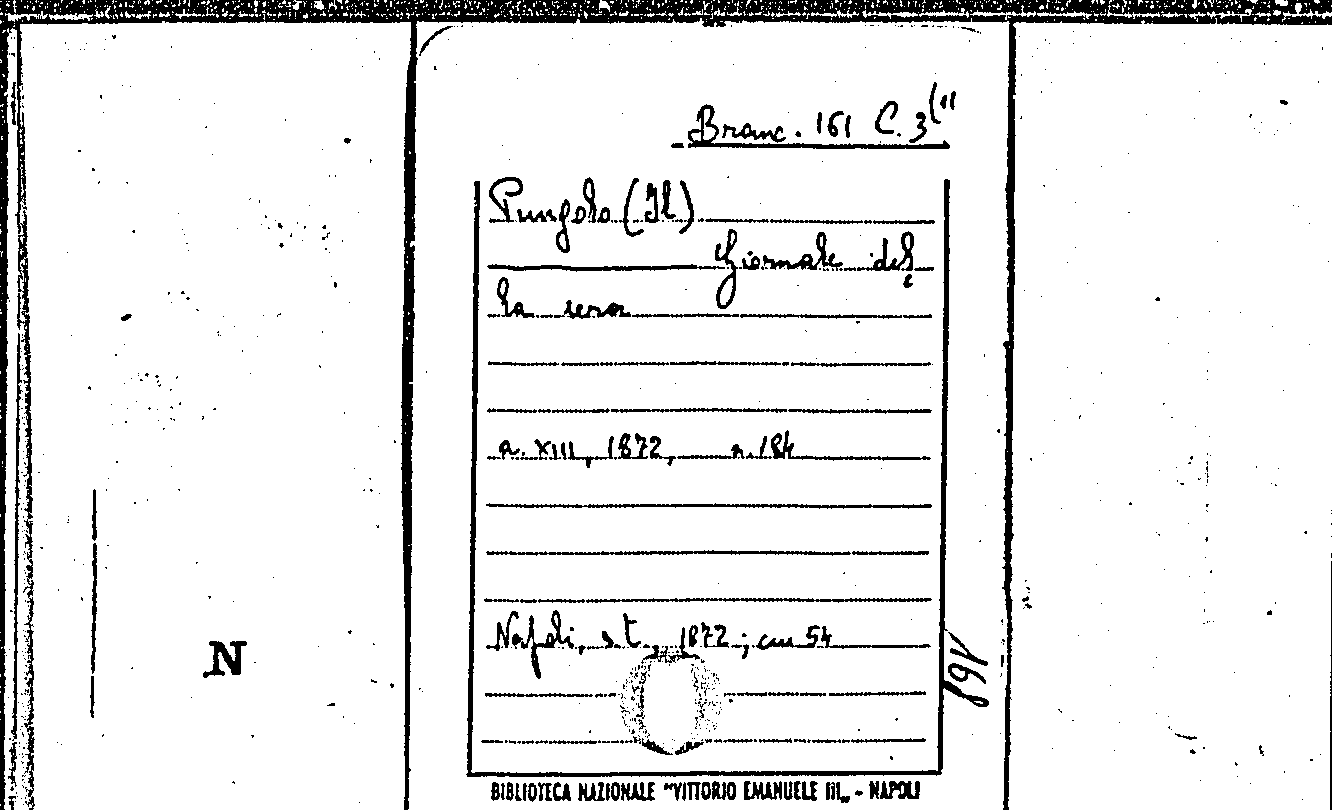 Branc. 161 C. 3(11
Pungolo (Il)
Giornale del
la sera
a. XIII, 1872, n. 184
Napoli, s.t., 1872; cm 54
168
N
BIBLIOTECA NAZIONALE "VITTORIO EMANUELE III„ - NAPOLI